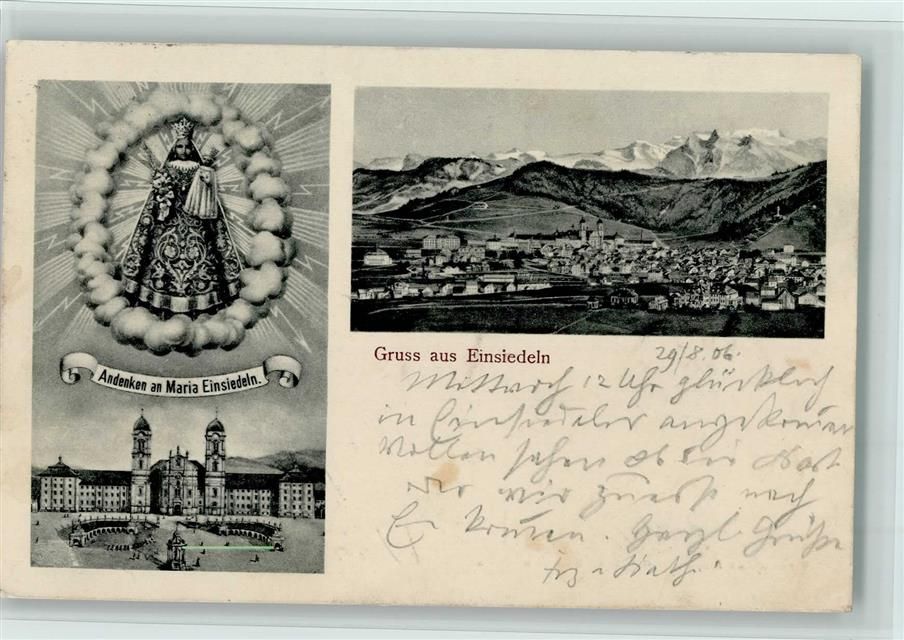 Andenken an Maria Einsiedeln.
Gruss aus Einsiedeln
29/8.06.
Mittwoch 12 Uhr glücklich
in Einsiedeln angekommen
Wollen sehen ob die
wir zuerst nach
kommen. Herzl Grüße